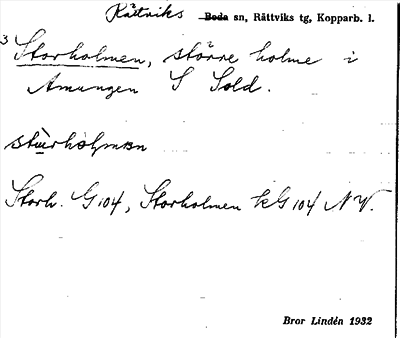 Rättviks Boda sn, Rättviks tg, Kopparb. l.
3 Storholmen, större holme i
Amungen S Sold.
stùrhòlmən
Storh. G 104, Storholmen kG 104 NV.
Bror Lindén 1932